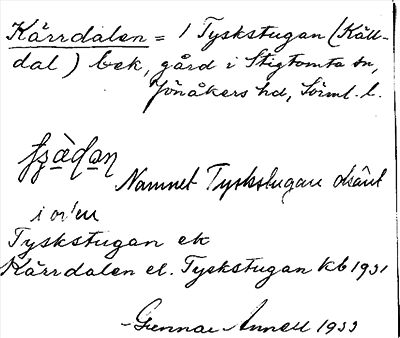 Kärrdalen = 1 Tyskstugan (Käll-
dal) bek, gård i Stigtomta sn,
Jönåkers hd, Sörml. l.
Namnet Tyskstugan okänt
i or'en
Tyskstugan ek
Kärrdalen el. Tyskstugan kb 1931
Gunnar Annell 1933